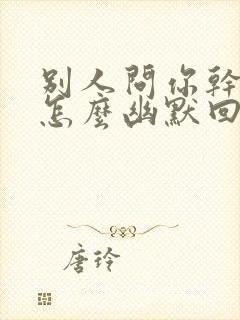 別人問你幹
怎麼幽默回
唐玲